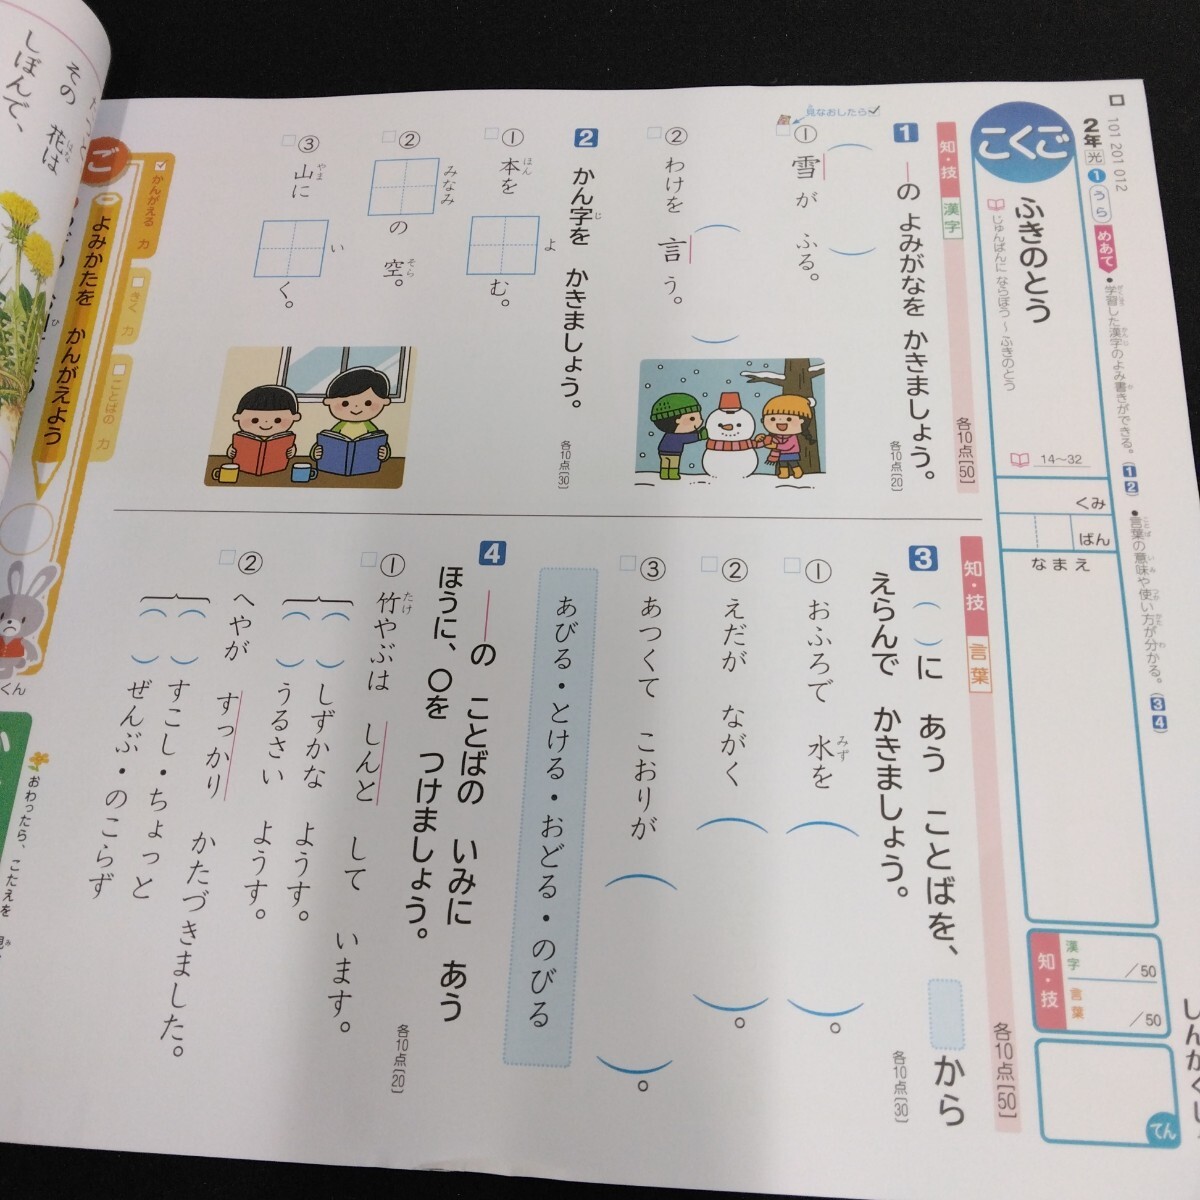 101 201 012
2年 光 1 うら
めあて
・学習した漢字のよみ書きができる。(1 2)
・言葉の意味や使い方が分かる。(3 4)
こくご
ふきのとう
じゅんばんに ならぼう〜ふきのとう
14〜32
くみ
ばん
なまえ
知・技
漢字 /50
言葉 /50
てん
知・技 漢字
各10点[50]
見なおしたら
1 ―の よみがなを かきましょう。
各10点[20]
① 雪が ふる。
② わけを 言う。
2 かん字を かきましょう。
各10点[30]
① 本を よむ。
② みなみの 空。
③ 山に いく。
知・技 言葉
各10点[50]
3 ( )に あう ことばを、 から
えらんで かきましょう。
各10点[30]
① おふろで 水を ( )。
② えだが ながく ( )。
③ あつくて こおりが ( )。
あびる・とける・おどる・のびる
4 ―の ことばの いみに あう
ほうに、○を つけましょう。
各10点[20]
① 竹やぶは しんと して います。
( )しずかな ようす。
( )うるさい ようす。
② へやが すっかり かたづきました。
( )すこし・ちょっと
( )ぜんぶ・のこらず
かんがえる 力
きく 力
ことばの 力
ご
よみかたを かんがえよう
その 花は
しぼんで、
くん
おわったら、こたえを